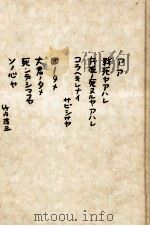 戦死ヤアハレ
兵隊ノ死ヌルヤアハレ
コラヘキレナイ
サビシサヤ
国ノタメ
大君ノタメ
死ンデシマフヤ
ソノ心ヤ
竹内浩三